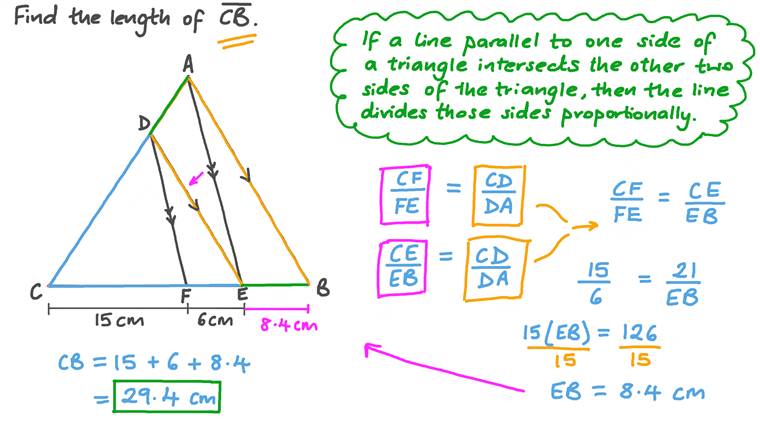 Find the length of CB.
If a line parallel to one side of
a triangle intersects the other two
sides of the triangle, then the line
divides those sides proportionally.
A
D
C
F
E
B
15 cm
6 cm
8.4 cm
CF/FE = CD/DA
CE/EB = CD/DA
CF/FE = CE/EB
15/6 = 21/EB
15(EB)/15 = 126/15
EB = 8.4 cm
CB = 15 + 6 + 8.4
= 29.4 cm